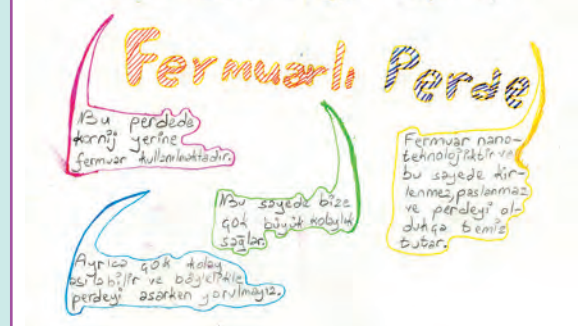 Fermuarlı Perde
Bu perdede
kornij yerine
fermuar kullanılmaktadır.
Bu sayede bize
çok büyük kolaylık
sağlar.
Fermuar nano-
teknolojiktir ve
bu sayede kir-
lenmez, paslanmaz
ve perdeyi ol-
dukça temiz
tutar.
Ayrıca çok kolay
asılabilir ve böylelikle
perdeyi asarken yorulmayız.